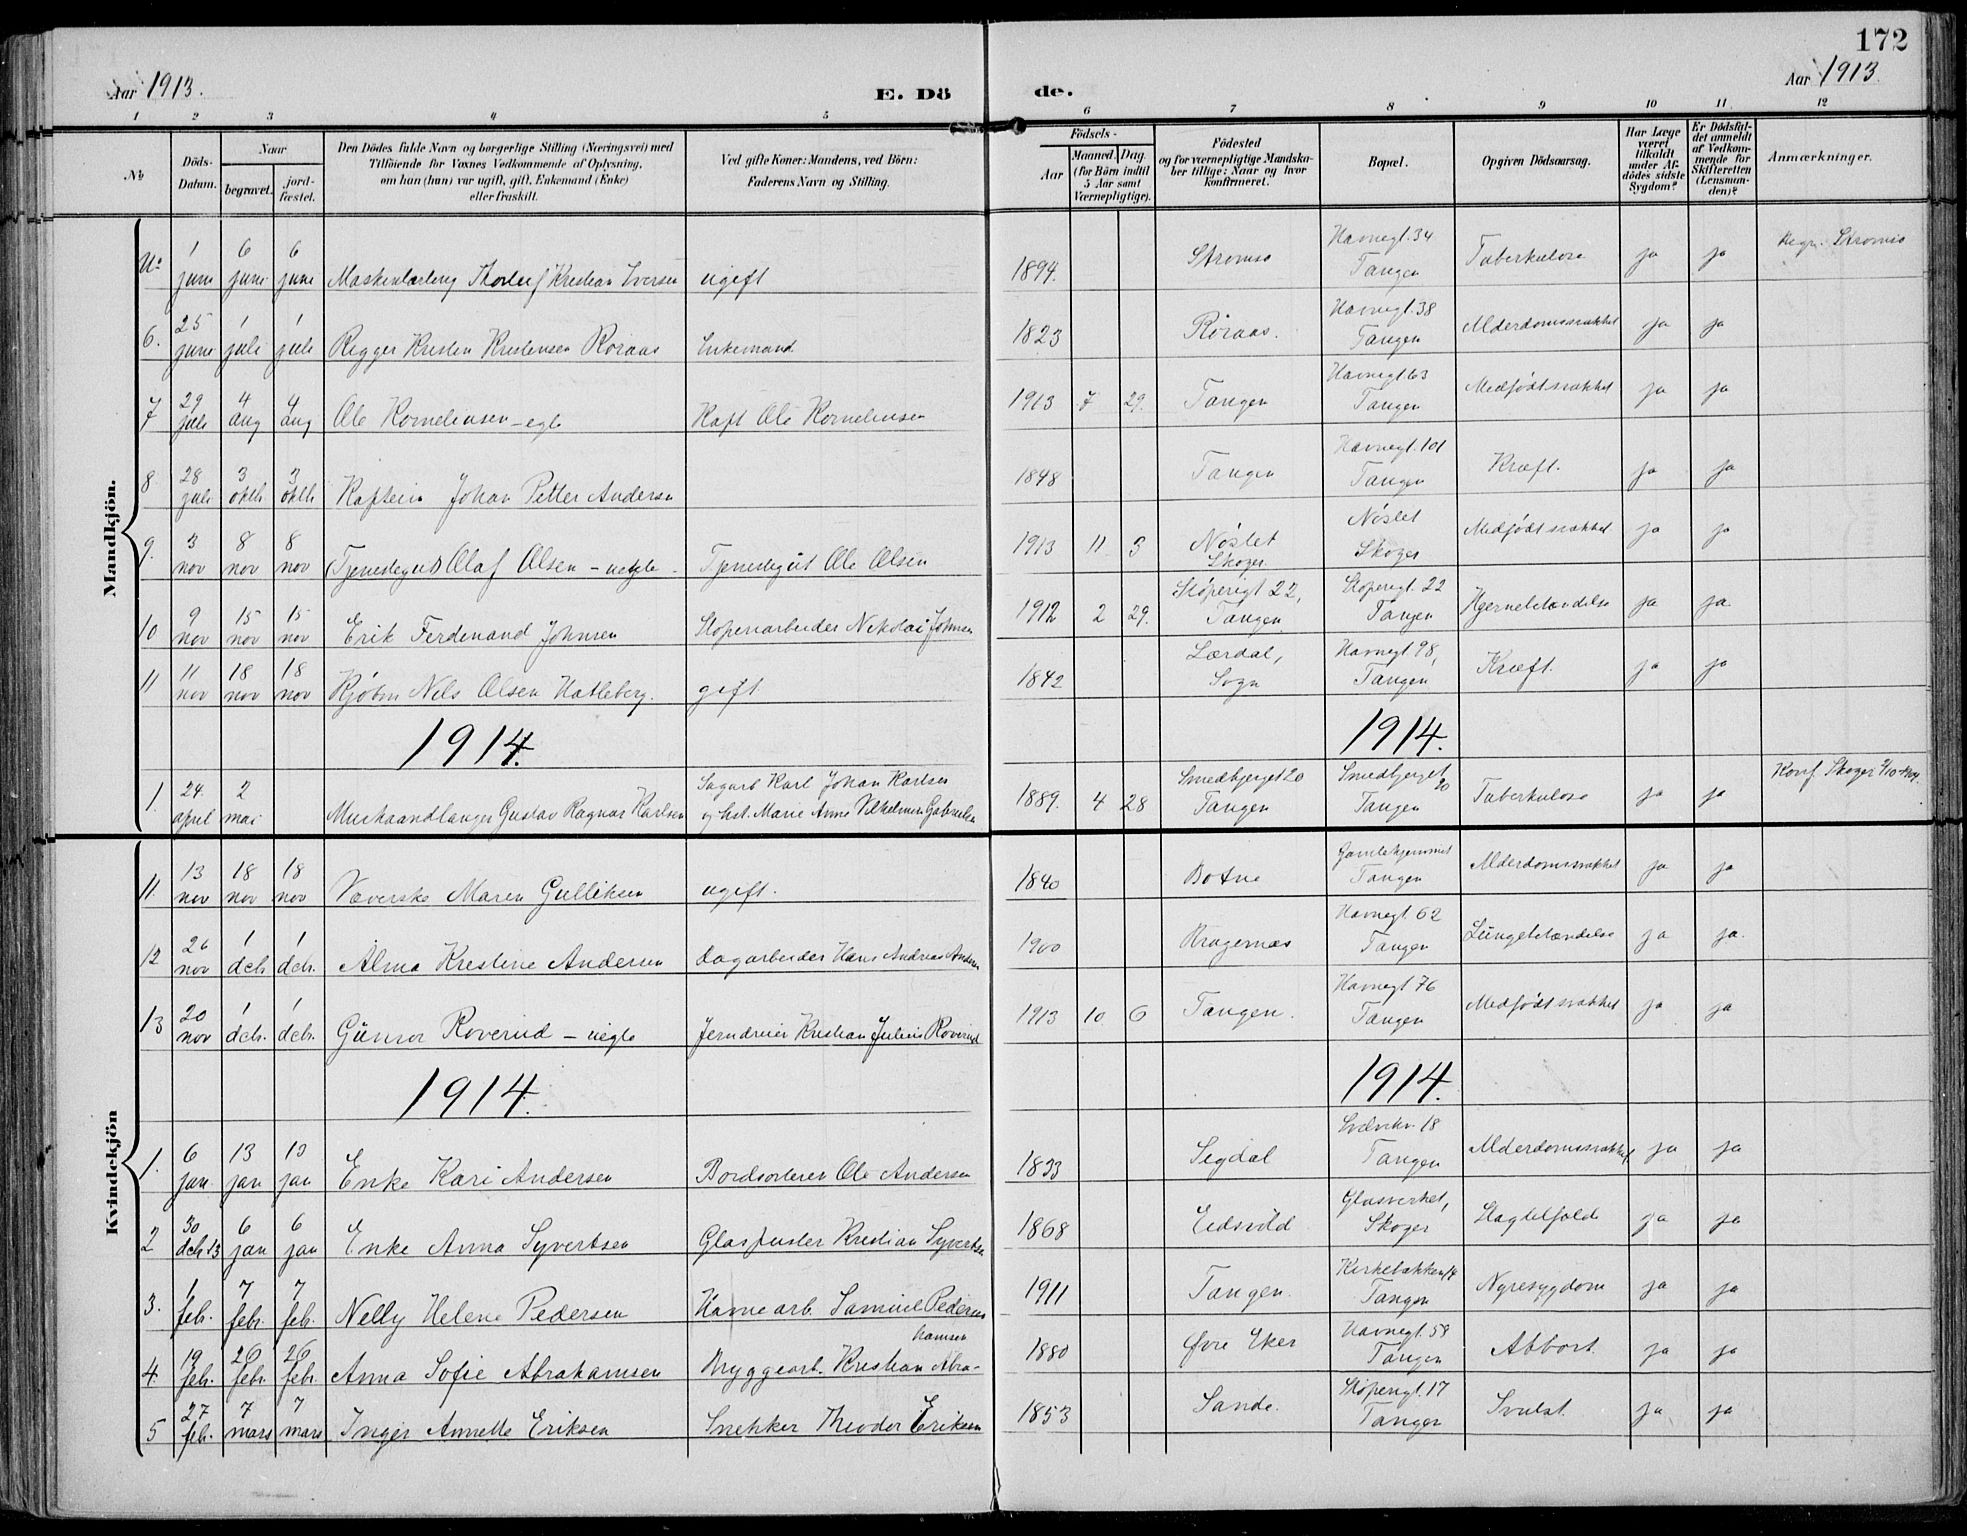 172
Aar 1913.
E. Dö de.
Aar 1913
1 2 3 4 5 6 7 8 9 10 11 12
№
Döds-Datum.
Naar
begravet.
jord-fæstet.
Den Dödes fulde Navn og borgerlige Stilling (Næringsvei) med
Tilföiende for Voxnes Vedkommende af Oplysning,
om han (hun) var ugift, gift, Enkemand (Enke)
eller fraskilt.
Ved gifte Koner: Mandens, ved Börn:
Faderens Navn og Stilling.
Födsels-
Aar
Maaned. Dag.
(for Börn indtil
5 Aar samt
Værnepligtige).
Födested
og for værnepligtige Mandska-
ber tillige: Naar og hvor
konfirmeret.
Bopæl.
Opgiven Dödsaarsag.
Har Læge
været
tilkaldt
under Af-
dödes sidste
Sygdom?
Er Dödsfal-
det anmeldt
af Vedkom-
mende for
Skifteretten
(Lensman-
den)?
Anmærkninger.
Mandkjön.
1 juni 6 juni 6 juni Maskinlærling Thorleif Kristian Iversen ugift 1894. Strømsø Havnegt. 34 Tangen Tuberkulose ja ja Strømsø
6. 25 juni 1 juli 1 juli Rigger Kristen Kristensen Røraas Enkemand 1823 Røraas. Havnegt. 38 Tangen Alderdomssvakhet ja ja
7 29 juli 4 aug 4 aug Ole Korneliussen - egte Kapt Ole Korneliussen 1913 7 29. Tangen Havnegt 63 Tangen Medfødt svakhet ja ja
8 28 juli 3 oktb 3 oktb Kaptein Johan Petter Andersen 1848 Tangen Havnegt. 101 Tangen Kræft. ja ja
9. 3 nov 8 nov 8 nov (Tjenestegut) Olaf Olsen - uegte - Tjenestegut Ole Olsen 1913 11 3 Nøstet Skoger Nøstet Skoger Medfødt svakhet ja ja
10 9 nov 15 nov 15 nov Erik Ferdinand Johnsen Støperiarbeider Nikolai Johnsen 1912 2 29. Støperigt 22, Tangen Støperigt. 22 Tangen Hjernebetændelse ja ja
11 11 nov 18 nov 18 nov Kjøbm Nils Olsen Hatleberg. gift 1842 Lærdal, Sogn Havnegt 98, Tangen Kræft. ja ja
1914. 1914.
1. 24 april 2 mai Murhaandlanger Gustav Ragnar Karlsen Sagarb Karl Johan Karlsen og hst. Marie Anne Vilhelmine Gabrielsen 1889. 4 28 Smedbjerget 20 Tangen Smedbjerget 20 Tangen Tuberkulose ja ja Konf Skoger
Kvindekjön
11 13 nov 18 nov 18 nov Væverske Maren Gulliksen ugift. 1840 Botne Gamlehjemmet Tangen Alderdomssvakhet ja ja
12 26 nov 1 deb 1 deb. Alma Kristine Andersen Dagarbeider Hans Andreas Andersen 1900 Bragernæs Havnegt 62 Tangen Lungebetændelse ja ja.
13 20 nov 1 deb. 1 deb. Gunvor Roverud - uegte Jerndreier Kristian Julius Roverud 1913 10 6 Tangen. Havnegt 76 Tangen Medfødt svakhet ja ja
1914. 1914.
1. 6 jan. 13 jan 13 jan Enke Kari Andersen Bordsorterer Ole Andersen 1833 Sigdal 18 Tangen Alderdomssvakhet ja ja
2 30 deb 13 6 jan 6 jan Enke Anna Syvertsen Glaspuster Kristian Syvertsen 1868 Eidsvold Glasverket, Skoger Slagtilfælde ja ja
3. 1 feb. 7 febr. 7 feb. Nelly Helene Pedersen Havnearb. Samuel Pedersen 1911 Tangen. Kirkebakken 14 Tangen Nyresygdom ja ja
4. 19 feb. 26 febr 26 febr Anna Sofie Abrahamsen Bryggearb. Kristian Abra-hamsen 1880 Øvre Eker Havnegt. 58 Tangen Abbort ja ja
5 27 feb. 7 mars 7 mars Inger Annette Eriksen Snekker Theodor Eriksen 1853 Sande. Støperigt. 17 Tangen Svulst. ja ja